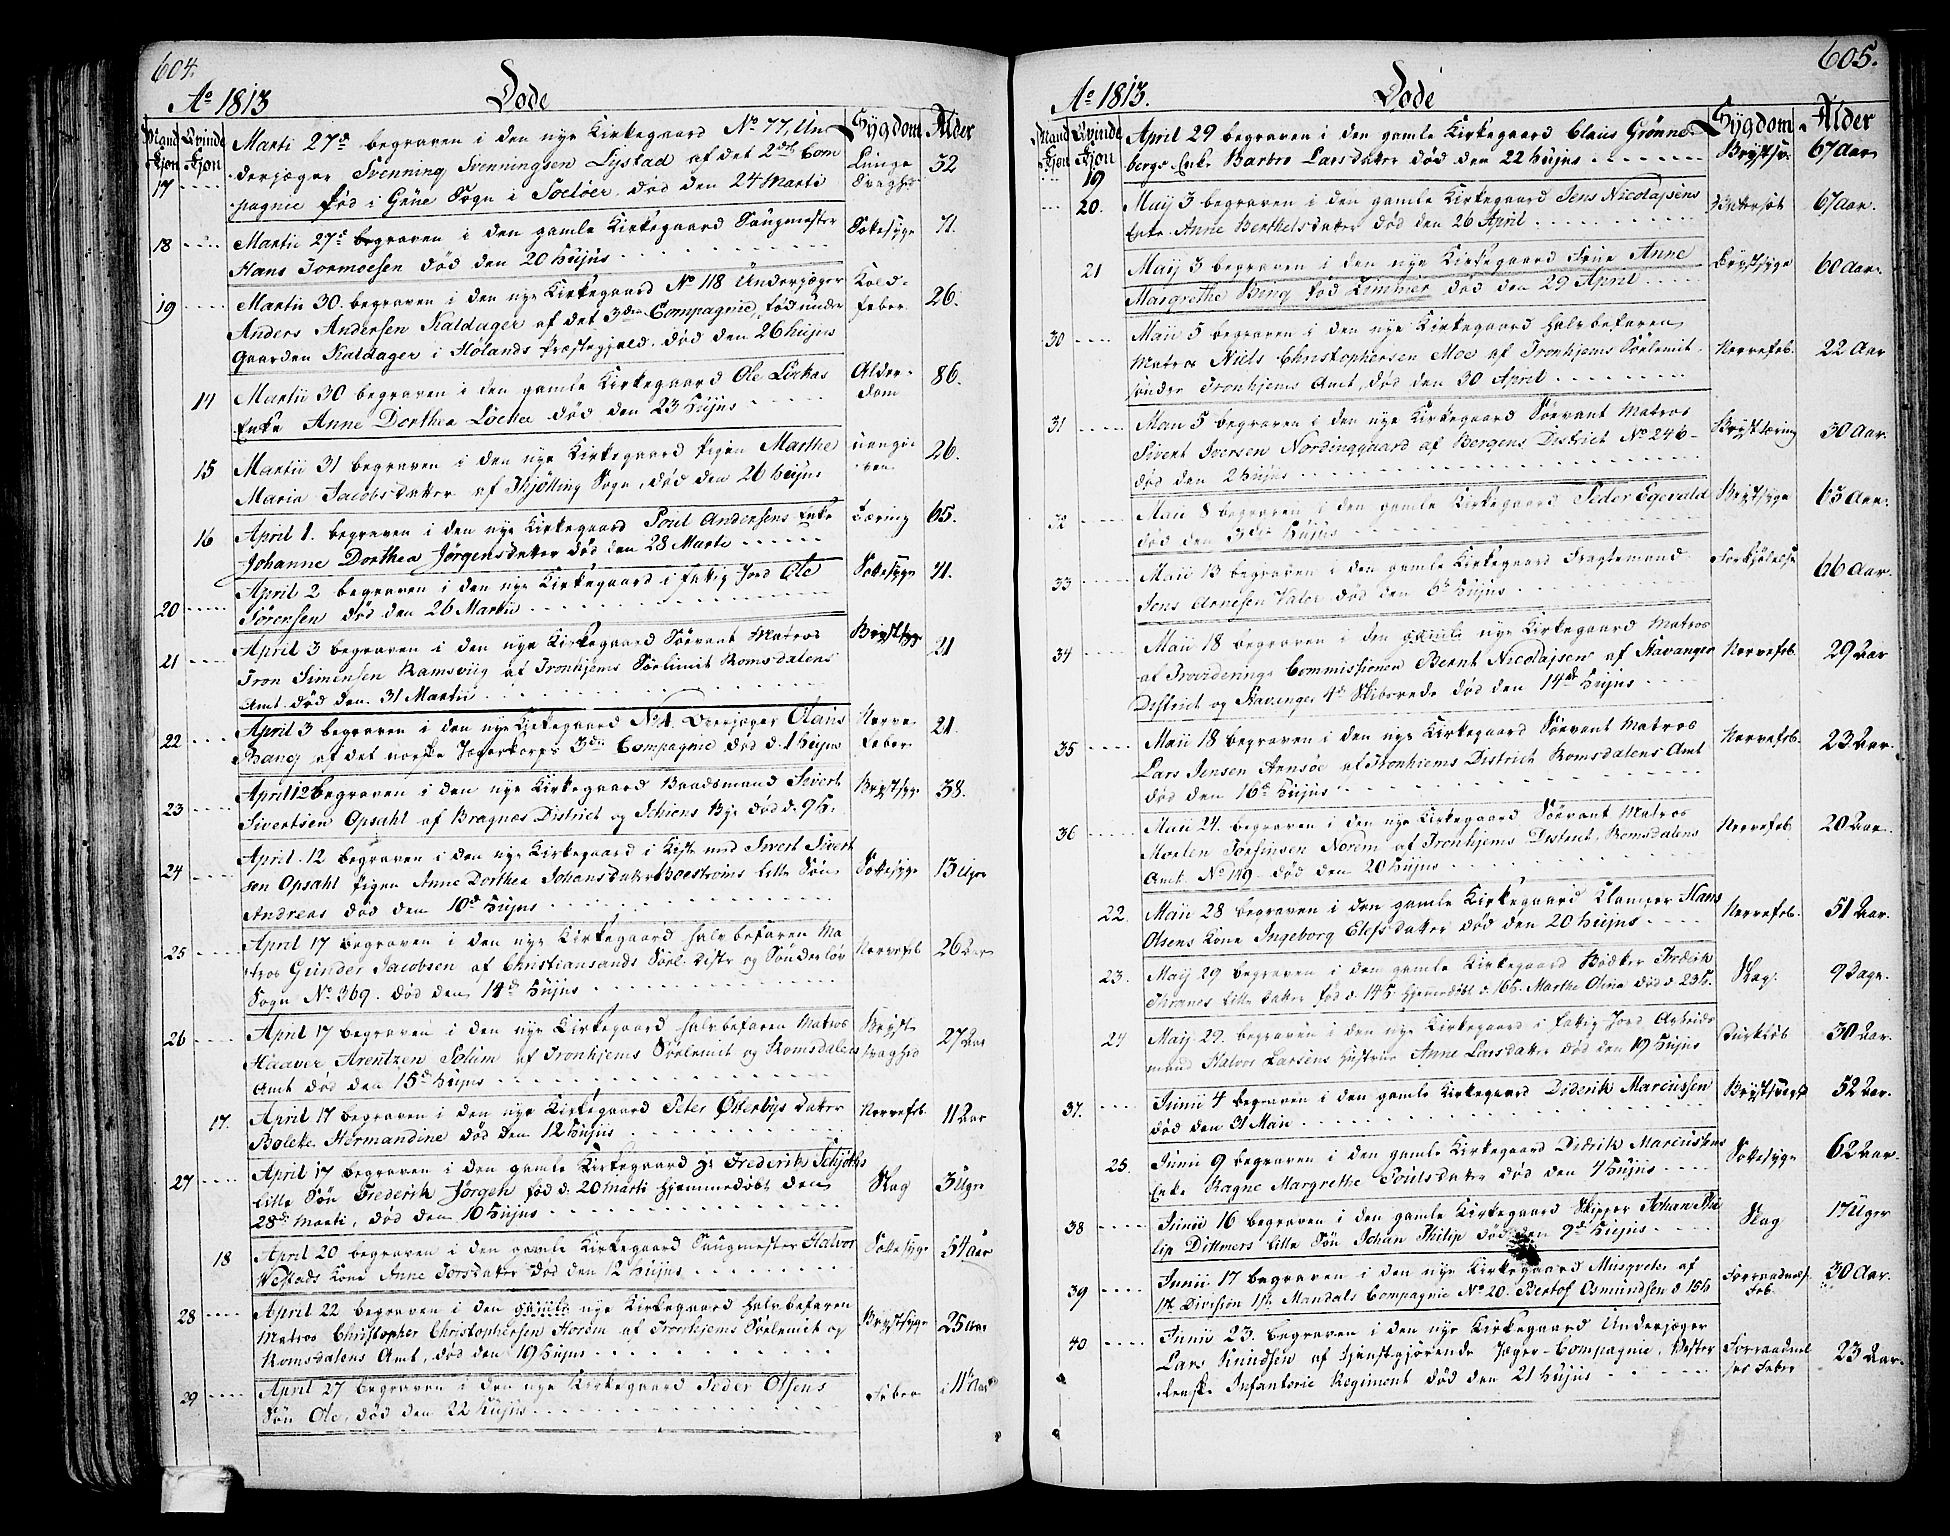 604.
Ao 1813 Døde
Mand Qvinde
Kjøn Kjøn Sygdom Alder
Martii 27de begraven i den nye Kirkegaard No 77, Un
17 derjæger Svenning Svenningsen Lystad af det 2det Com Lunge 32
pagnie fød i Sogn i Soeløer, død den 24 Martii Svaghed
18 Martii 27de begraven i den gamle Kirkegaard Saugmester Sottesyge 71.
Hans Tormoesen død den 20 Hujus
19 Martii 30. begraven i den nye Kirkegaard No 118 Underjæger Kold- 26.
Anders Andersen Kaldager af det 3die Compagnie, fød under feber
Gaarden Kaldager i Hølands Præstegjæld. død den 26 Hujus
14 Martii 30 begraven i den gamle Kirkegaard Ole Lirkas Alder- 86.
Enke Anne Dorthea Løcke død den 23 Hujus dom
15 Martii 31 begraven i den nye Kirkegaard Pigen Marthe 26.
Maria Jacobsdatter af Skjølling Sogn, død den 26 Hujus
16 April 1. begraven i den nye Kirkegaard Poul Andersens Enke Tæring 65.
Johanne Dorthea Jørgensdatter død den 28 Marti
April 2 begraven i den nye Kirkegaard i fattig Jord Ole Sottesyge 71.
20 Sørensen død den 26 Martii
April 3 begraven i den nye Kirkegaard Søevant Matros Brystsyge
21 Tron Simensen Ramsviig af Tronhjems Sølimit Romsdalens 21
Amt død den 31 Martii
April 3 begraven i den nye Kirkegaard No 1. Oberjæger Olaus Nerve 21.
22 Bang af det norske Jægerkorps 3die Compagnie død d. 1 Hujus feber
April 12 begraven i den nye Kirkegaard Baadsmand Sivert Brystsyge 38.
23 Sivertsen Opsahl af Bragnæs District og Schiens Bye død d. 9 H.
April 12 begraven i den nye Kirkegaard i Kiste med Sivert Sivert
24 sen Opsahl Pigen Anne Dorthea Johansdatter Boestrøms lille Søn Sottesyge 13 Uger
Andreas død den 10de Hujus
April 17 begraven i den nye Kirkegaard halvbefaren Ma
25 tros Gunder Jacobsen af Christiansands Søel. Distr og Sønderløv Nervefeb 26 Aar
Sogn No 369. død den 14de Hujus
April 17 begraven i den nye Kirkegaard halvbefaren Matros Bryst
26 Haaver Arentzen Solum af Tronhjems Sølimit og Romsdalens svaghed 27 Aar
Amt død den 15de Hujus
17. April 17 begraven i den nye Kirkegaard Peter Østerbys datter Nervefeb 11 Aar
Bolette Hermandine død den 12 Hujus
April 17 begraven i den gamle Kirkegaard Hr Frederik Schjøths
27 lille Søn Frederik Jørgen fød d. 20 Marti hjemmedøbt den Slag 3 Uger
28de Marti, død den 10 Hujus
18 April 20 begraven i den gamle Kirkegaard Saugmester Halvor Sottesyge 54 Aar
Vestads Kone Anne Torsdatter død den 12 Hujus
April 22 begraven i den gamle nye Kirkegaard halvbefaren
28 Matros Christopher Christophersen Horem af Tronhjems Sølimit og Brystsyge 25 Aar
Romsdalens Amt, død den 19 Hujus
April 27 begraven i den nye Kirkegaard Peder Olsens
29 Søn Ole, død den 22 Hujus Feber 11 Aar
605.
Ao 1813. Døde
Mand Qvinde
Kjøn Kjøn Sygdom Alder
April 29 begraven i den gamle Kirkegaard Claus Grønne-
19 bergs Enke Barbro Larsdatter død den 22 Hujus Brystsv. 67 Aar
20. Maij 3 begraven i den gamle Kirkegaard Jens Nicolajsens 67 Aar.
Enke Anne Berthelsdatter død den 26 April
21 Maij 3 begraven i den nye Kirkegaard Frue Anne Brystsyge 60 Aar.
Margrethe Bing fød Kimmer død den 29 April
Maii 5 begraven i den nye Kirkegaard halvbefaren
30 Matros Niels Christophersen Moe af Tronhjems Sølimit Nervefeb. 22 Aar
søndre Tronhjems Amt, død den 30 April
31 Maii 5 begraven i den nye Kirkegaard Søevant Matros Brysttæring 30 Aar.
Sivert Iversen Nordinggaard af Bergens District No 246-
død den 2 Hujus
32 Maii 8 begraven i den gamle Kirkegaard Peder Egevald Brystsyge 65 Aar.
død den 3die Hujus
33 Maii 13 begraven i den gamle Kirkegaard Fragtemand Forkjølelse 66 Aar.
Jens Arnesen Valøe død den 6te Hujus
34 Maii 18 begraven i den gamle nye Kirkegaard Matros
af Provideringe Commissionen Bernt Nicolajsen af Stavanger Nervefeb. 29 Aar
District og Stavanger 4de Skibsrede død den 14de Hujus
35 Maii 18 begraven i den nye Kirkegaard Søevant Matros
Lars Jensen Arnsøe af Tronhjems District Romsdalens Amt Nervefeb. 23 Aar.
død den 16de Hujus
36 Maii 24. begraven i den nye Kirkegaard Søevant Matros
Morten Torfinsen Norem af Tronhjems District, Romsdalens Nervefeb 20 Aar
Amt No 149 død den 20 Hujus
22. Maii 28 begraven i den gamle Kirkegaard Klamper Hans Nervefeb. 51 Aar.
Olsens Kone Ingeborg Elefsdatter død den 20 Hujus
23. Maij 29 begraven i den gamle Kirkegaard Bødker Fredrik Slag. 9 Dage.
Thranes lille datter fød d. 14 H. hjemmedøbt d. 16 H. Marthe Olina død d 23 H.
24 Maij 29. begraven i den nye Kirkegaard i fattig Jord Arbeids 30 Aar.
mand Halvor Larsens Hustrue Anne Larsdatter død den 19 Hujus
37. Junii 4 begraven i den gamle Kirkegaard Diderik Marcussen Brystsvagh 52 Aar.
død den 31 Maii
25. Junii 9 begraven i den gamle Kirkegaard Didrik Marcussens Sottesyge 62 Aar.
Enke Ragne Margrethe Poulsdatter død den 4 Hujus
38 Junii 16 begraven i den gamle Kirkegaard Skipper Johan Phi Slag 17 Uger
lip Dittmers lille Søn Johan Philip død den 9de Hujus
39 Junii 17 begraven i den nye Kirkegaard Musqveteer af Forraadnels 30 Aar.
1ste Division 1ste Mandals Compagnie No 20. Bertof Osmundsen d 15 H. Feb.
40 Junii 23. begraven i den nye Kirkegaard Underjæger
Lars Knudsen af tjenstgjørende Jæger-Compagnie, Vester Forraadnel 23 Aar.
lenske Infanterie Regiment død den 21 Hujus ses Feber